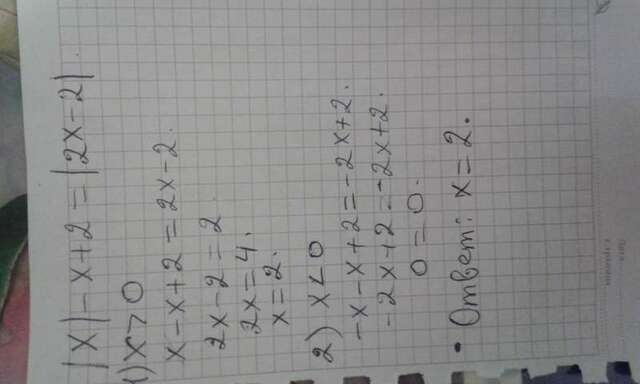 |x|-x+2=|2x-2|.
1) x>0
x-x+2=2x-2.
2x-2=2.
2x=4.
x=2.
2) x<0
-x-x+2=-2x+2.
-2x+2=-2x+2.
0=0.
• Ответ: x=2.